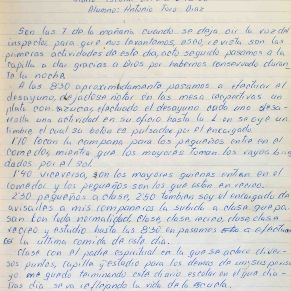 Alumno: Antonio Toro Diaz
Son las 7 de la mañana cuando se deja oir la voz del
inspector para que nos levantemos, aseo, revista son las
primeras actividades de este dia, acto seguido pasamos a la
capilla a dar gracias a Dios por habernos conservado duran-
te la noche
A las 8'30 aproximadamente pasamos a efectuar el
desayuno, dejarse notar en las mesas, respectivas un
plato con azucar, efectuado el desayuno cada uno desa-
rrolla una actividad en su oficio hasta la 1 en se oye un
timbre el cual su boton es pulsado por el encargado
1'10 tocan la campana para los pequeños entre en el
comedor mientras que los mayores toman los rayos brin-
dados por el sol
1'40 viceversa, son los mayores quienes entran en el
comedor y los pequeños son los que estan en recreo.
2'30 pequeños a clase, 2'50 tambien soy el encargado de
avisarles a mis compañeros la subida a clase que pa-
san con toda normalidad, clase, clase, recreo, clase, clase
recreo y estudio hasta las 8'30 en pasamos a efectuar
la última comida de este dia.
Clase con el padre espiritual en la que se aclara diver-
sos puntos, capilla y estudio para los demas
yo me quedo terminando este diario escolar en el que dia-
rias se va reflejando la vida de la escuela.